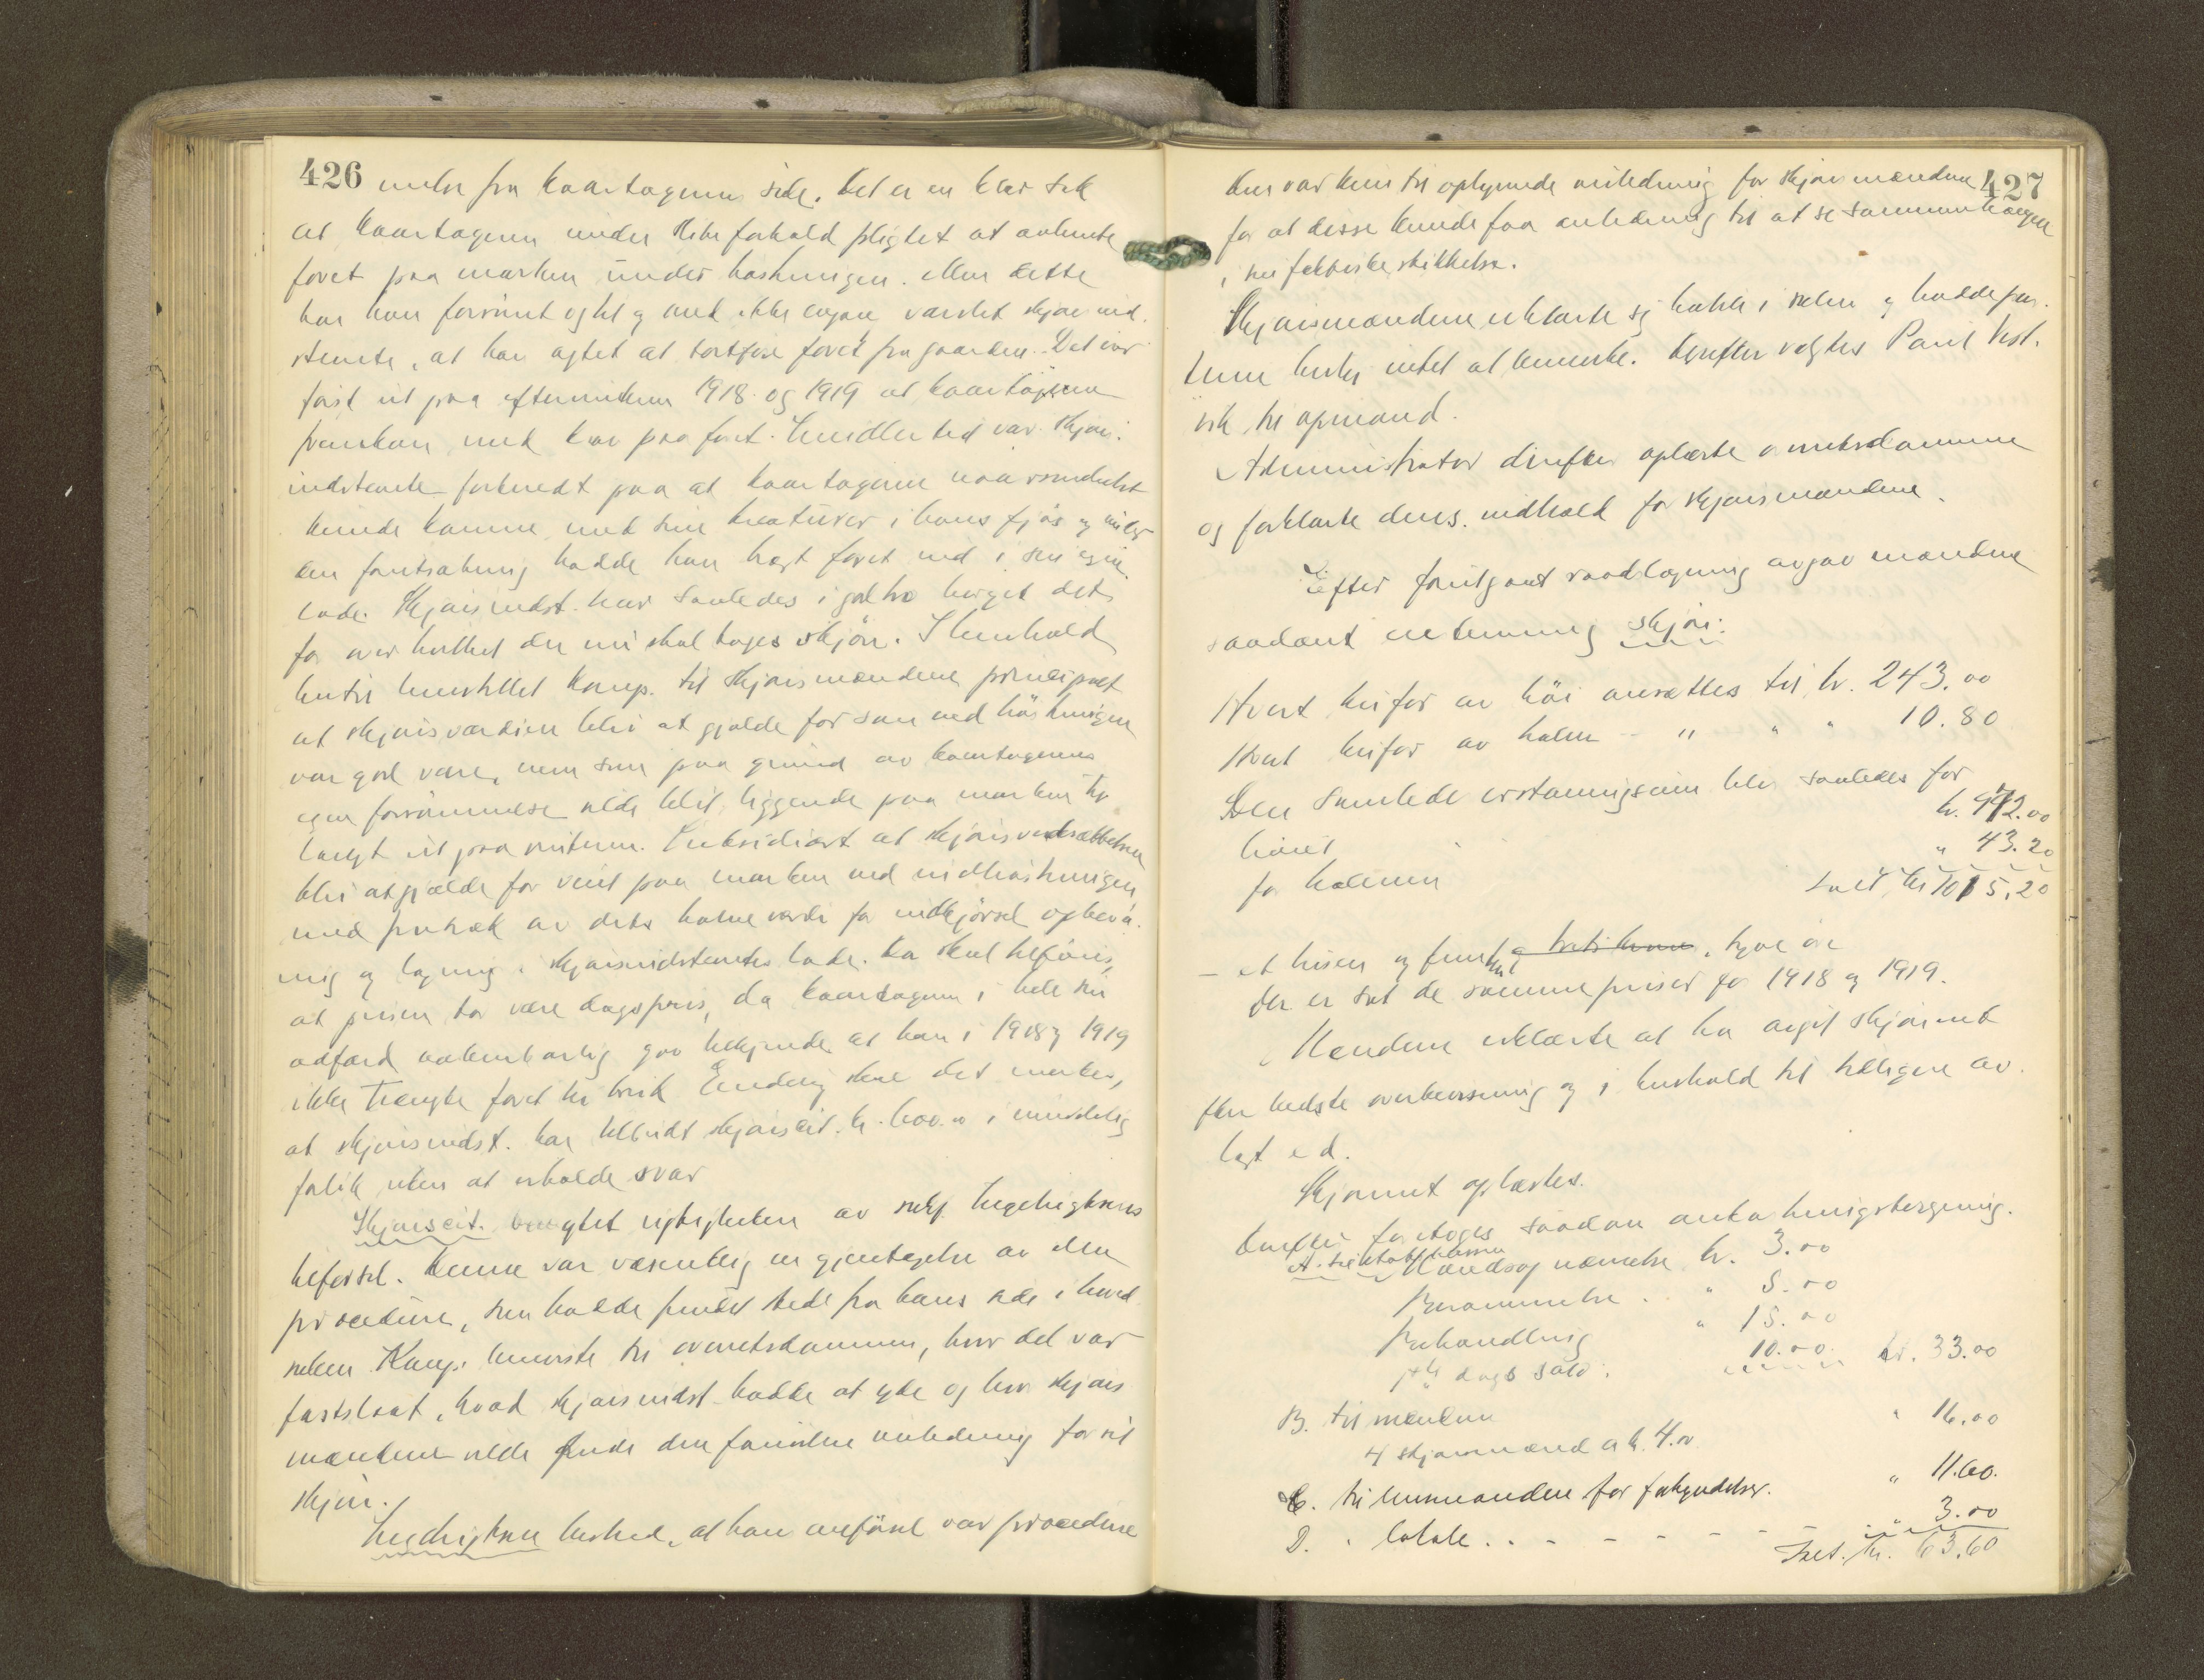 426
fra kaartagerens side. Det er en klar sak
at kaartageren under slike forhold pligtet at avhente
foret paa marken under høstningen. Men dette
har han forsømt og det og med ikke engang varslet skjønsind-
stevnte, at han agtet at bortføre foret fra gaarden. Det var
først ut paa eftervinteren 1918 og 1919 at kaartageren
fremkom med krav paa foret. Imidlertid var skjøns-
indstevnte forberedt paa at kaartageren naarsomhelst
kunde komme med sine kreaturer i hans fjøs og under
den forutsætning hadde han bragt foret ind i sin egen
lade. Skjønsindst. har saaledes i god tro berget det
for over hvilket der nu skal tages skjøn. I henhold
hertil henstillet Kamp. til skjønsmændene principalt
at skjønsværdien blir at gjælde for som ved høstningen
var god vare, men som paa grund av kaartagerens
egen forsømmelse vilde blit liggende paa marken til
langt ut paa vinteren. Subsidiært at skjønsverdsættelsen
blir at gjælde for vunt paa marken ved indhøstningen
med fratræk av dets halve værdi for indkjørsel opbeva-
ring og lagring i skjønsindstevntes lade. Der skal tilføies,
at prisen bør være dagspris, da kaartageren i hele sin
adfærd aabenbarlig gav tilkjende at han i 1918 og 1919
ikke trængte foret til bruk. Endelig skal det merkes,
at skjønsindst. har tilbudt skjønscit. kr. 600.00 i mindelig
forlik uten at erholde svar
Skjønscit. benegtet rigtigheten av
tilførsel. Denne var væsentlig en gjentagelse av den
procedure, som hadde fundet sted fra hans side i hoved-
saken. Kamp. henviste til overretsdommen, hvor det var
fastslaat, hvad skjønsindst. hadde at yde og hvor skjøns
mændene vilde finde den fornødne veiledning for sit
skjøn.
bemerket, at hans anførsel var procedure
427
Den var kun til oplysende veiledning for skjønsmændene
for at disse kunde faa anledning til at se sammenhængen
i sin faktiske skikkelse.
Skjønsmændene erklærte sig habile i saken og hadde par-
terne herom intet at bemerke. Derefter valgtes Paul Vest-
vik til opmand.
Administrator derefter oplæste overretsdommen
og forklarte dens indhold for skjønsmændene.
Efter forutgaat raadlagning avgav mændene
saadant enstemmig skjøn:
Hvert kufor av høi ansættes til kr. 243.00
Hvert kufor av halm - " " " 10.80
Den samlede erstatningssum blir saaledes for
høiet kr. 972.00
for halmen " 43.20
Ialt kr. 1015.20
- et tusen og femten kr. tyve øre
Der er sat de samme priser for 1918 og 1919.
Mændene erklærte at ha avgit skjønnet
efter bedste overbevisning og i henhold til tidligere av
lagt ed.
Skjønnet oplæstes.
Derefter foretoges saadan omkostningsberegning.
A. til statskassen
Mandsopnævnelse kr. 3.00
Berammelse . " 5.00
Behandling " 15.00
dags sold . 10.00 kr. 33.00
B. til mændene
4 skjønsmænd a kr. 4.00 " 16.00
C. til lensmanden for forkyndelser. " 11.60.
D. " lokale . . - - - - - " 3.00
Ialt. kr. 63.60